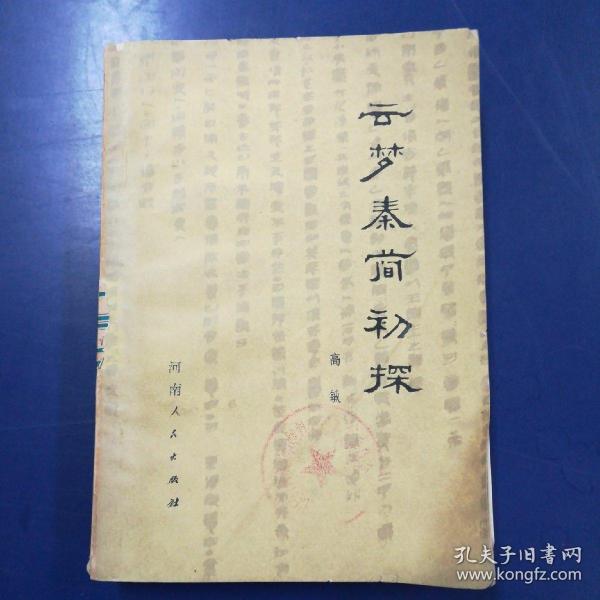 云梦秦简初探
高敏
河南人民出版社
孔夫子旧书网
www.kongfz.com